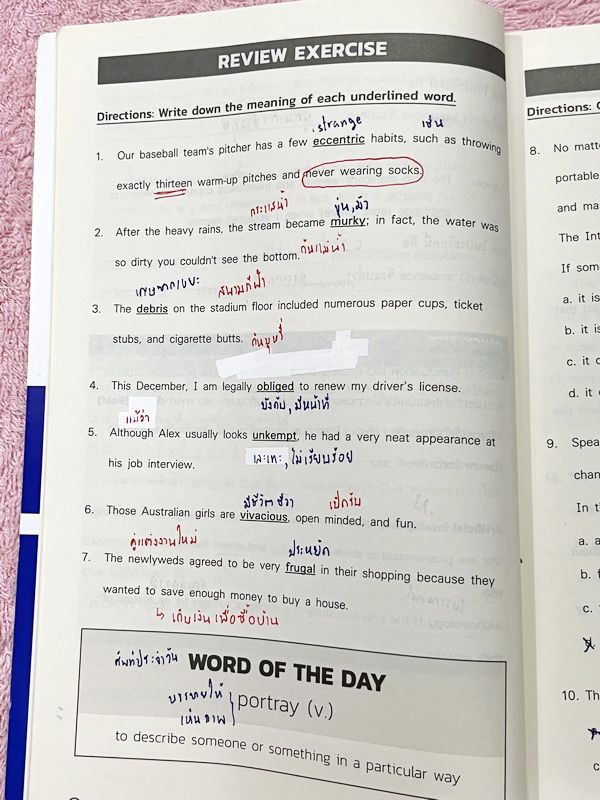 REVIEW EXERCISE
Directions: Write down the meaning of each underlined word.
strange เช่น
1. Our baseball team's pitcher has a few eccentric habits, such as throwing
exactly thirteen warm-up pitches and never wearing socks.
กระแสน้ำ ขุ่น, มัว
2. After the heavy rains, the stream became murky; in fact, the water was
so dirty you couldn't see the bottom. ก้นแม่น้ำ
เศษซากขยะ สนามกีฬา
3. The debris on the stadium floor included numerous paper cups, ticket
stubs, and cigarette butts. ก้นบุหรี่
4. This December, I am legally obliged to renew my driver's license.
บังคับ, มีหน้าที่
แม้ว่า
5. Although Alex usually looks unkempt, he had a very neat appearance at
his job interview. เละเทะ, ไม่เรียบร้อย
มีชีวิตชีวา เปิดรับ
6. Those Australian girls are vivacious, open minded, and fun.
คู่แต่งงานใหม่ ประหยัด
7. The newlyweds agreed to be very frugal in their shopping because they
wanted to save enough money to buy a house.
↳ เก็บเงินเพื่อซื้อบ้าน
ศัพท์ประจำวัน WORD OF THE DAY
บรรยายให้
เห็นภาพ portray (v.)
to describe someone or something in a particular way
Directions: C
8. No matt
portable
and ma
The Int
If som
a. it is
b. it is
c. it c
d. it
9. Spea
chan
In t
a. a
b. f
c.
10. Th
c